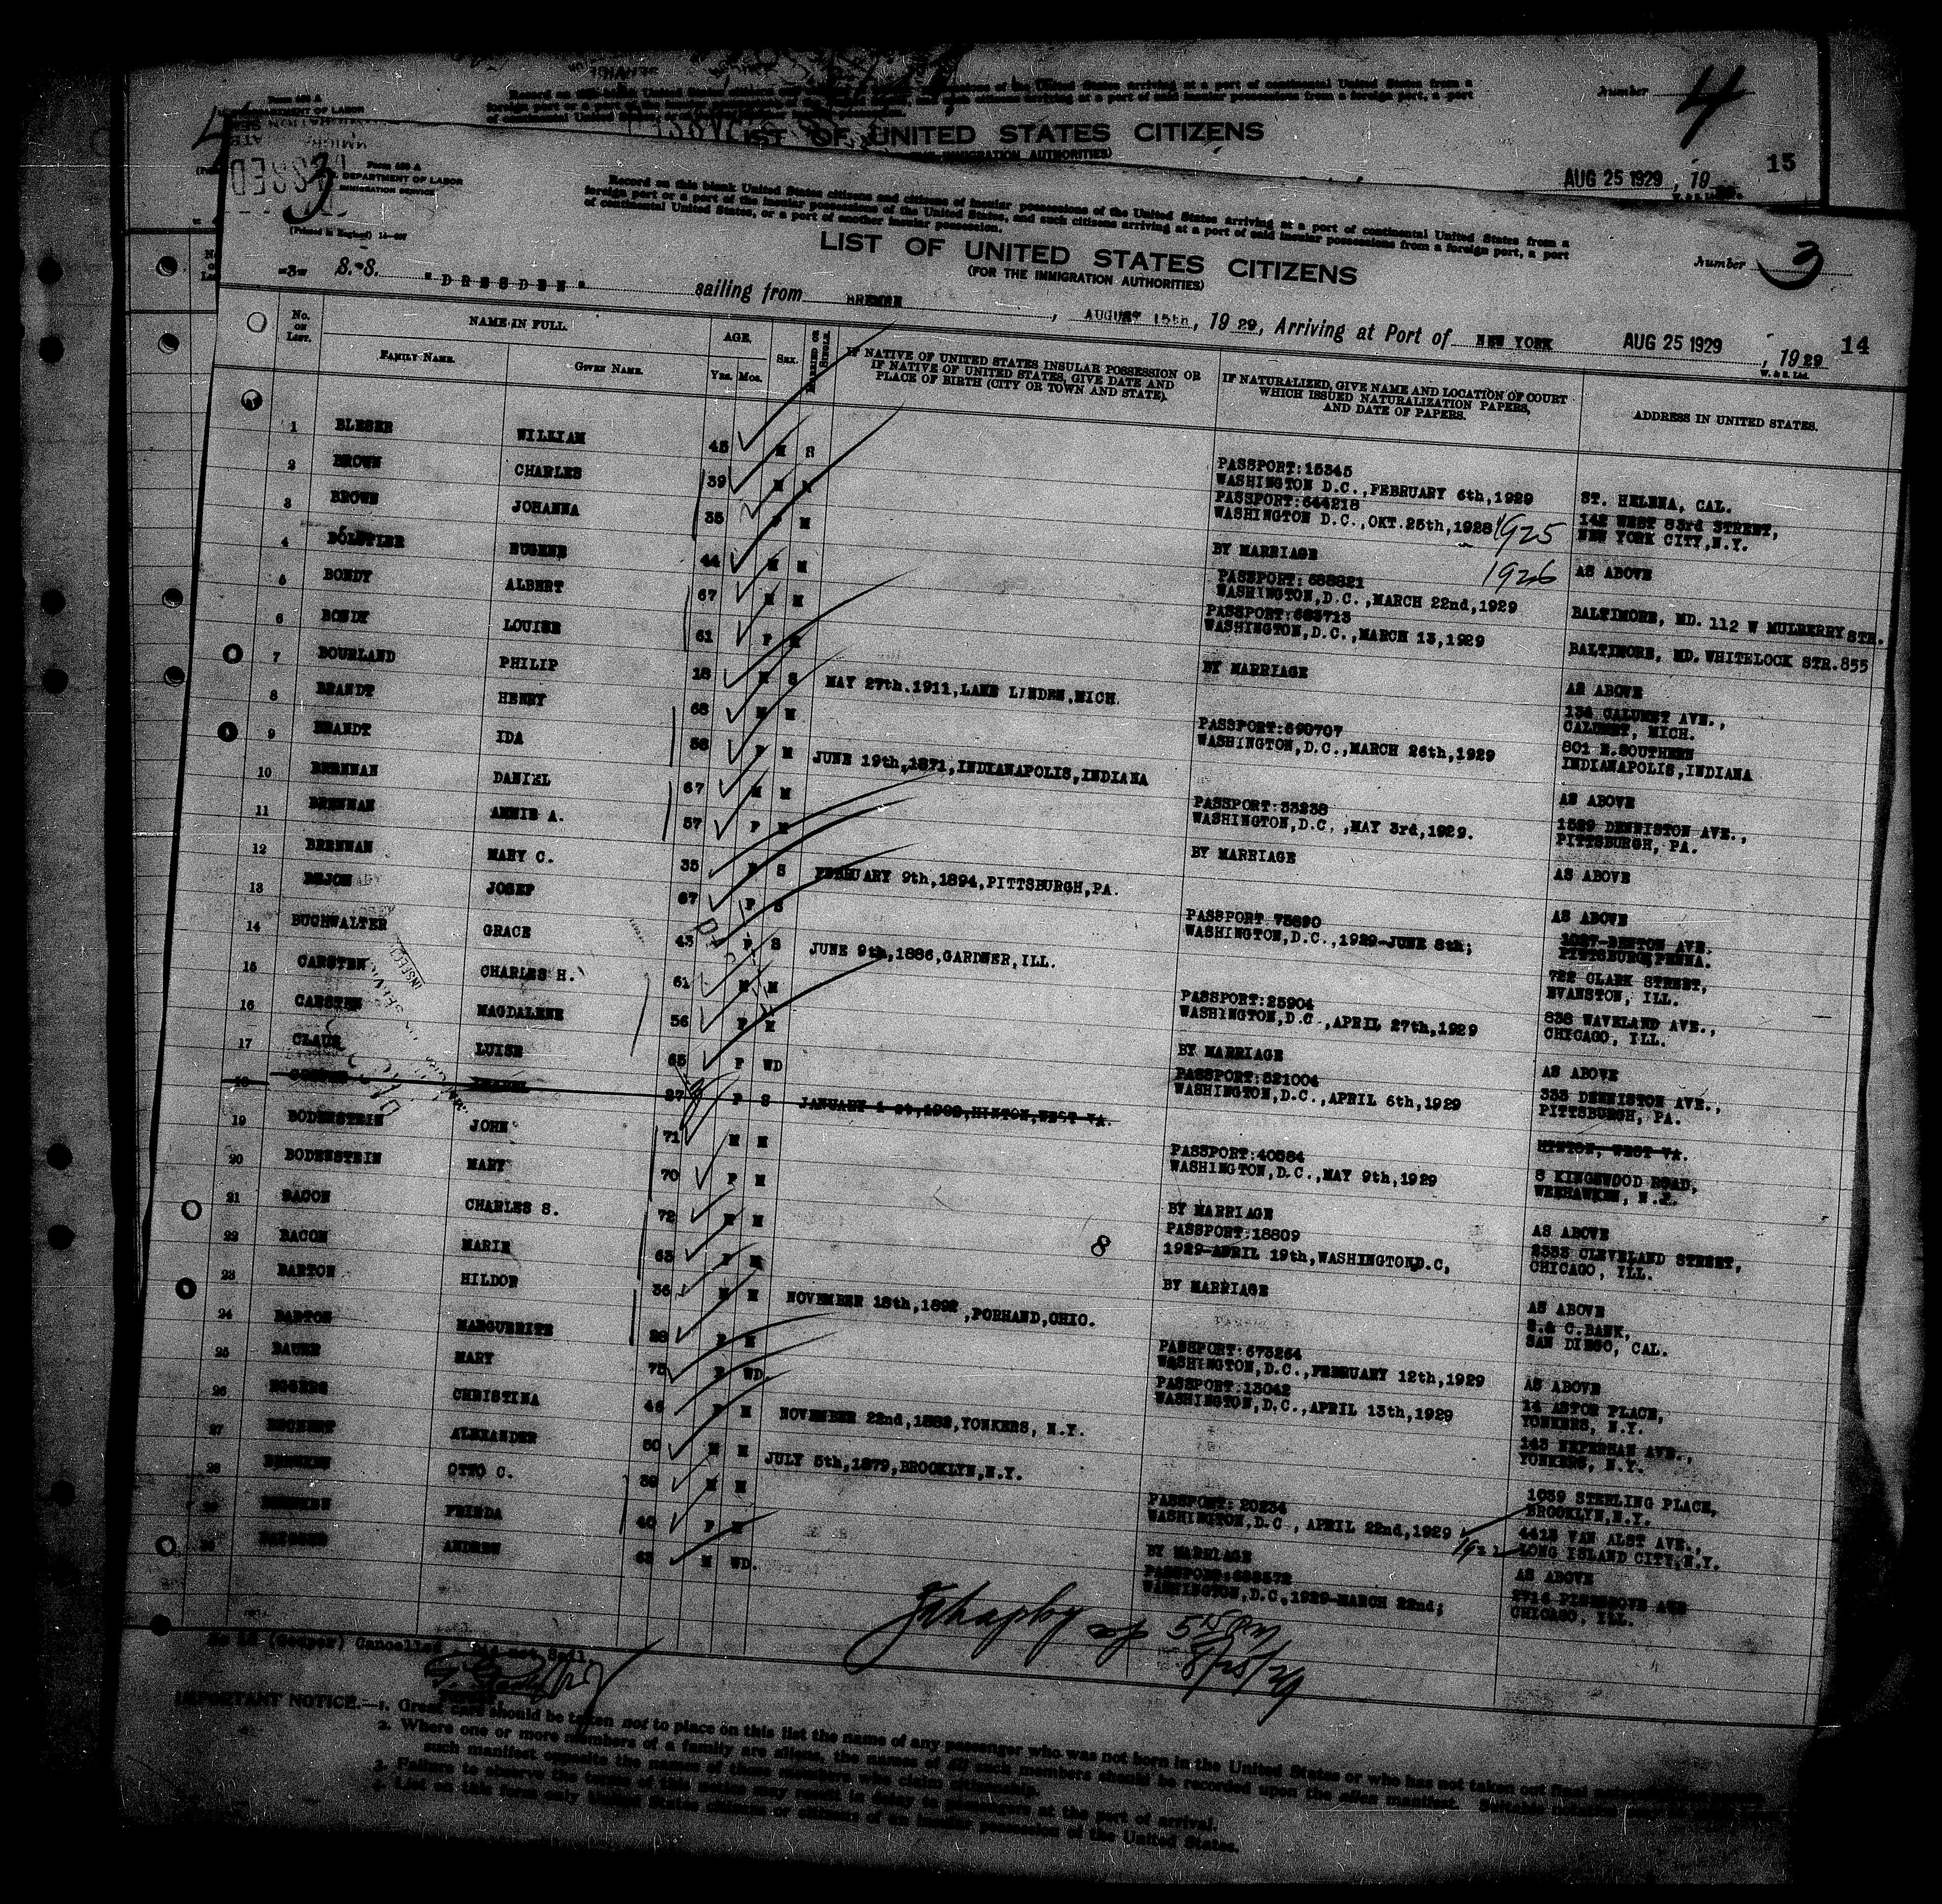 Form 630 A
DEPARTMENT OF LABOR
Number 4
LIST OF UNITED STATES CITIZENS
(FOR THE IMMIGRATION AUTHORITIES)
AUG 25 1929, 19 15
3
DEPARTMENT OF LABOR
IMMIGRATION SERVICE
(Printed in England)
Record on this blank United States citizens and citizens of insular possessions of the United States arriving at a port of continental United States from a
foreign port or a port of the insular possessions of the United States, and such citizens arriving at a port of said insular possessions from a foreign port, a port
of continental United States, or a port of another insular possession.
LIST OF UNITED STATES CITIZENS
(FOR THE IMMIGRATION AUTHORITIES)
Number 3
-3- S.-S. "DRESDEN" sailing from BREMEN, AUGUST 15th, 1929, Arriving at Port of NEW YORK AUG 25 1929, 1929 14
W. & S. Ltd.
No. on List. NAME IN FULL. AGE. SEX. MARRIED OR SINGLE.
FAMILY NAME. GIVEN NAME. Yrs. Mos.
IF NATIVE OF UNITED STATES INSULAR POSSESSION OR
IF NATIVE OF UNITED STATES, GIVE DATE AND
PLACE OF BIRTH (CITY OR TOWN AND STATE).
IF NATURALIZED, GIVE NAME AND LOCATION OF COURT
WHICH ISSUED NATURALIZATION PAPERS,
AND DATE OF PAPERS.
ADDRESS IN UNITED STATES.
1 BLESER WILLIAM 45 M S PASSPORT:15345
WASHINGTON D.C.,FEBRUARY 6th,1929 ST. HELENA, CAL.
2 BROWN CHARLES 39 M M PASSPORT:644218
WASHINGTON D.C.,OKT.25th,1928 1925 142 WEST 83rd STREET,
NEW YORK CITY,N.Y.
3 BROWN JOHANNA 35 F M BY MARRIAGE AS ABOVE
4 EUGENE 44 M M PASSPORT: 1926
WASHINGTON,D.C.,MARCH 22nd,1929 BALTIMORE, MD. 112 W MULBERRY STR.
5 BONDY ALBERT 67 M M PASSPORT:683713
WASHINGTON,D.C.,MARCH 13,1929 BALTIMORE, MD. WHITELOCK STR.855
6 BONDY LOUISE 61 F M BY MARRIAGE AS ABOVE
7 BOURLAND PHILIP 18 M S MAY 27th.1911,LAKE LINDEN,MICH. 134 CALUMET AVE.,
CALUMET, MICH.
8 BRANDT HENRY 68 M M PASSPORT:690707
WASHINGTON,D.C.,MARCH 26th,1929 801 E.SOUTHERN
INDIANAPOLIS,INDIANA
9 BRANDT IDA 58 F M JUNE 19th,1871,INDIANAPOLIS,INDIANA AS ABOVE
10 BRENNAN DANIEL 67 M M PASSPORT:33238
WASHINGTON,D.C. ,MAY 3rd,1929. 1529 DENNISTON AVE.,
PITTSBURGH, PA.
11 BRENNAN ANNIE A. 57 F M BY MARRIAGE AS ABOVE
12 BRENNAN MARY C. 35 F S FEBRUARY 9th,1894,PITTSBURGH,PA. AS ABOVE
13 JOSEF 67 F S PASSPORT
WASHINGTON,D.C.,1929-JUNE 8th; AVE.
14 BUCHWALTER GRACE 43 F S JUNE 9th,1886,GARDNER,ILL. 722 CLARK STREET,
EVANSTON, ILL.
15 CARSTEN CHARLES H. 61 M M PASSPORT:25904
WASHINGTON,D.C.,APRIL 27th,1929 838 WAVELAND AVE.,
CHICAGO, ILL.
16 CARSTEN MAGDALENE 56 F M BY MARRIAGE AS ABOVE
17 CLAUS LUISE 65 F WD PASSPORT:521004
WASHINGTON,D.C.,APRIL 6th,1929 333 DENNISTON AVE.,
PITTSBURGH, PA.
18 27 F S JANUARY 1 st,1902,HINTON,WEST VA. HINTON, WEST VA.
19 BODENSTEIN JOHN 71 M M PASSPORT:40584
WASHINGTON,D.C.,MAY 9th,1929 8 KINGSWOOD ROAD,
WEEHAWKEN, N.J.
20 BODENSTEIN MARY 70 F M BY MARRIAGE AS ABOVE
21 BACON CHARLES S. 72 M M PASSPORT:18809
1929-APRIL 19th,WASHINGTOND.C, 2333 CLEVELAND STREET,
CHICAGO, ILL.
22 BACON MARIE 63 F M 8 BY MARRIAGE AS ABOVE
23 BARTON HILDOR 36 M M NOVEMBER 18th,1892,PORHAND,OHIO. S.& C.BANK,
SAN DIEGO, CAL.
24 BARTON MARGUERITE 28 F M PASSPORT:673264
WASHINGTON,D.C.,FEBRUARY 12th,1929 AS ABOVE
25 BAUER MARY 75 F WD. PASSPORT:13042
WASHINGTON,D.C.,APRIL 13th,1929 14 ASTOR PLACE,
YONKERS, N.Y.
26 EGGERS CHRISTINA 46 F M NOVEMBER 22nd,1882,YONKERS, N.Y. 143 NEPERHAN AVE.,
YONKERS, N.Y.
27 ALEXANDER 50 M M JULY 5th,1879,BROOKLYN,N.Y. 1039 STERLING PLACE,
BROOKLYN,N.Y.
28 OTTO C. 39 M M PASSPORT: 20234
WASHINGTON,D.C., APRIL 22nd,1929 4413 VAN ALST AVE.,
LONG ISLAND CITY,N.Y.
FRIEDA 40 F M BY MARRIAGE AS ABOVE
ANDREW 63 M WD. PASSPORT:
WASHINGTON,D.C,1929-MARCH 22nd; AVE
CHICAGO, ILL.
No 18 (Cooper) Cancelled - Did not Sail.
8/25/29
IMPORTANT NOTICE.—1. Great care should be taken not to place on this list the name of any passenger who was not born in the United States or who has not taken out final
2. Where one or more members of a family are aliens, the names of all such members should be recorded upon the alien manifest.
such manifest opposite the names of those members who claim citizenship.
3. Failure to observe the terms of this notice may result in delay to passengers at the port of arrival.
4. List on this form only United States citizens or citizens of an insular possession of the United States.